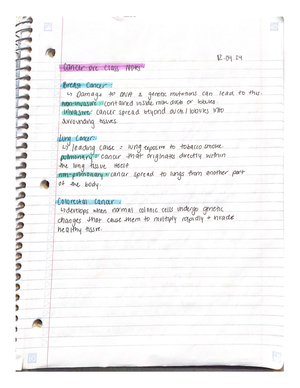 12.09.24
Cancer Class Notes
Breast Cancer
↳ Damage to DNA & genetic mutations can lead to this
non-invasive: contained inside milk ducts or lobules
invasive: cancer spread beyond ducts / lobules into
surrounding tissues.
Lung Cancer
↳ leading cause = lung exposure to tobacco smoke
pulmonary: cancer that originates directly within
the lung tissue itself
non-pulmonary: cancer spread to lungs from another part
of the body.
Colorectal Cancer
↳ develops when normal colonic cells undergo genetic
changes that cause them to multiply rapidly & invade
healthy tissue.